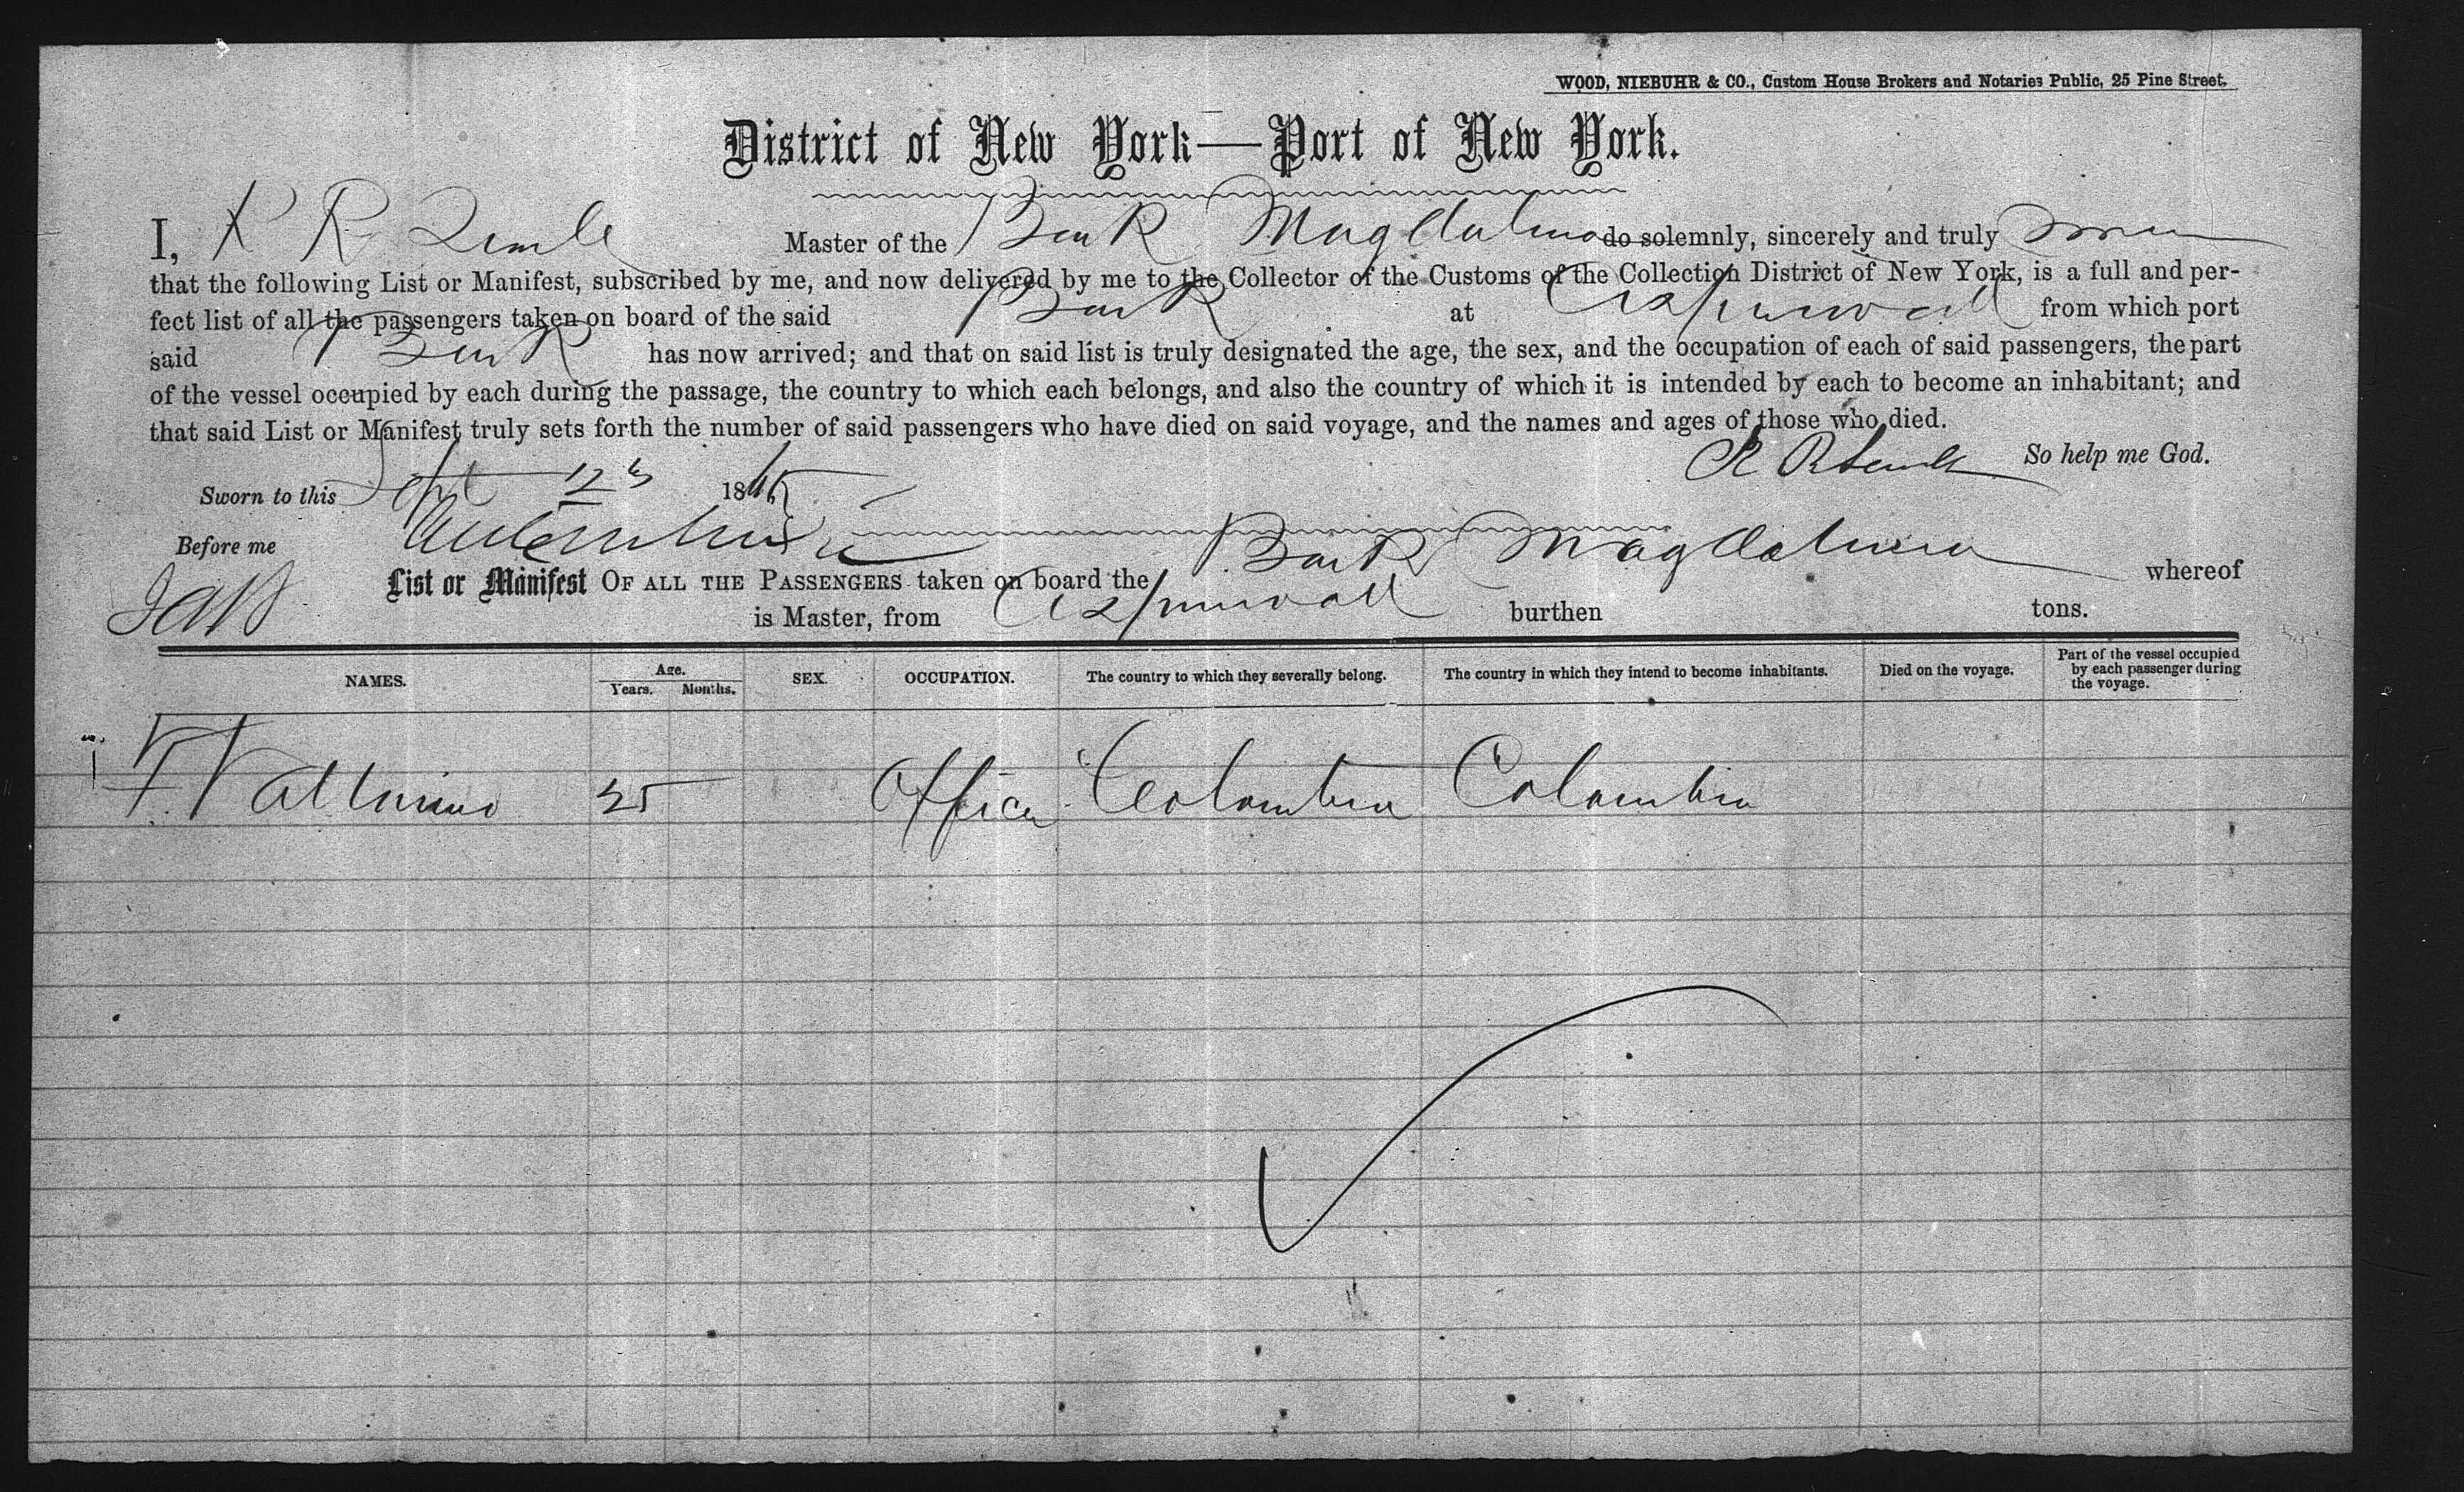 WOOD, NIEBUHR & CO., Custom House Brokers and Notaries Public, 25 Pine Street.
District of New York—Port of New York.
I, R R Master of the Bark Magdalena do solemnly, sincerely and truly swear
that the following List or Manifest, subscribed by me, and now delivered by me to the Collector of the Customs of the Collection District of New York, is a full and per-
fect list of all the passengers taken on board of the said Bark at Aspinwall from which port
said Bark has now arrived; and that on said list is truly designated the age, the sex, and the occupation of each of said passengers, the part
of the vessel occupied by each during the passage, the country to which each belongs, and also the country of which it is intended by each to become an inhabitant; and
that said List or Manifest truly sets forth the number of said passengers who have died on said voyage, and the names and ages of those who died.
R R So help me God.
Sworn to this Sept 12 186
Before me
List or Manifest OF ALL THE PASSENGERS taken on board the Bark Magdalena whereof
is Master, from Aspinwall burthen tons.
NAMES. Age. Years. Months. SEX. OCCUPATION. The country to which they severally belong. The country in which they intend to become inhabitants. Died on the voyage. Part of the vessel occupied by each passenger during the voyage.
1 F. 25 Officer Colombia Colombia